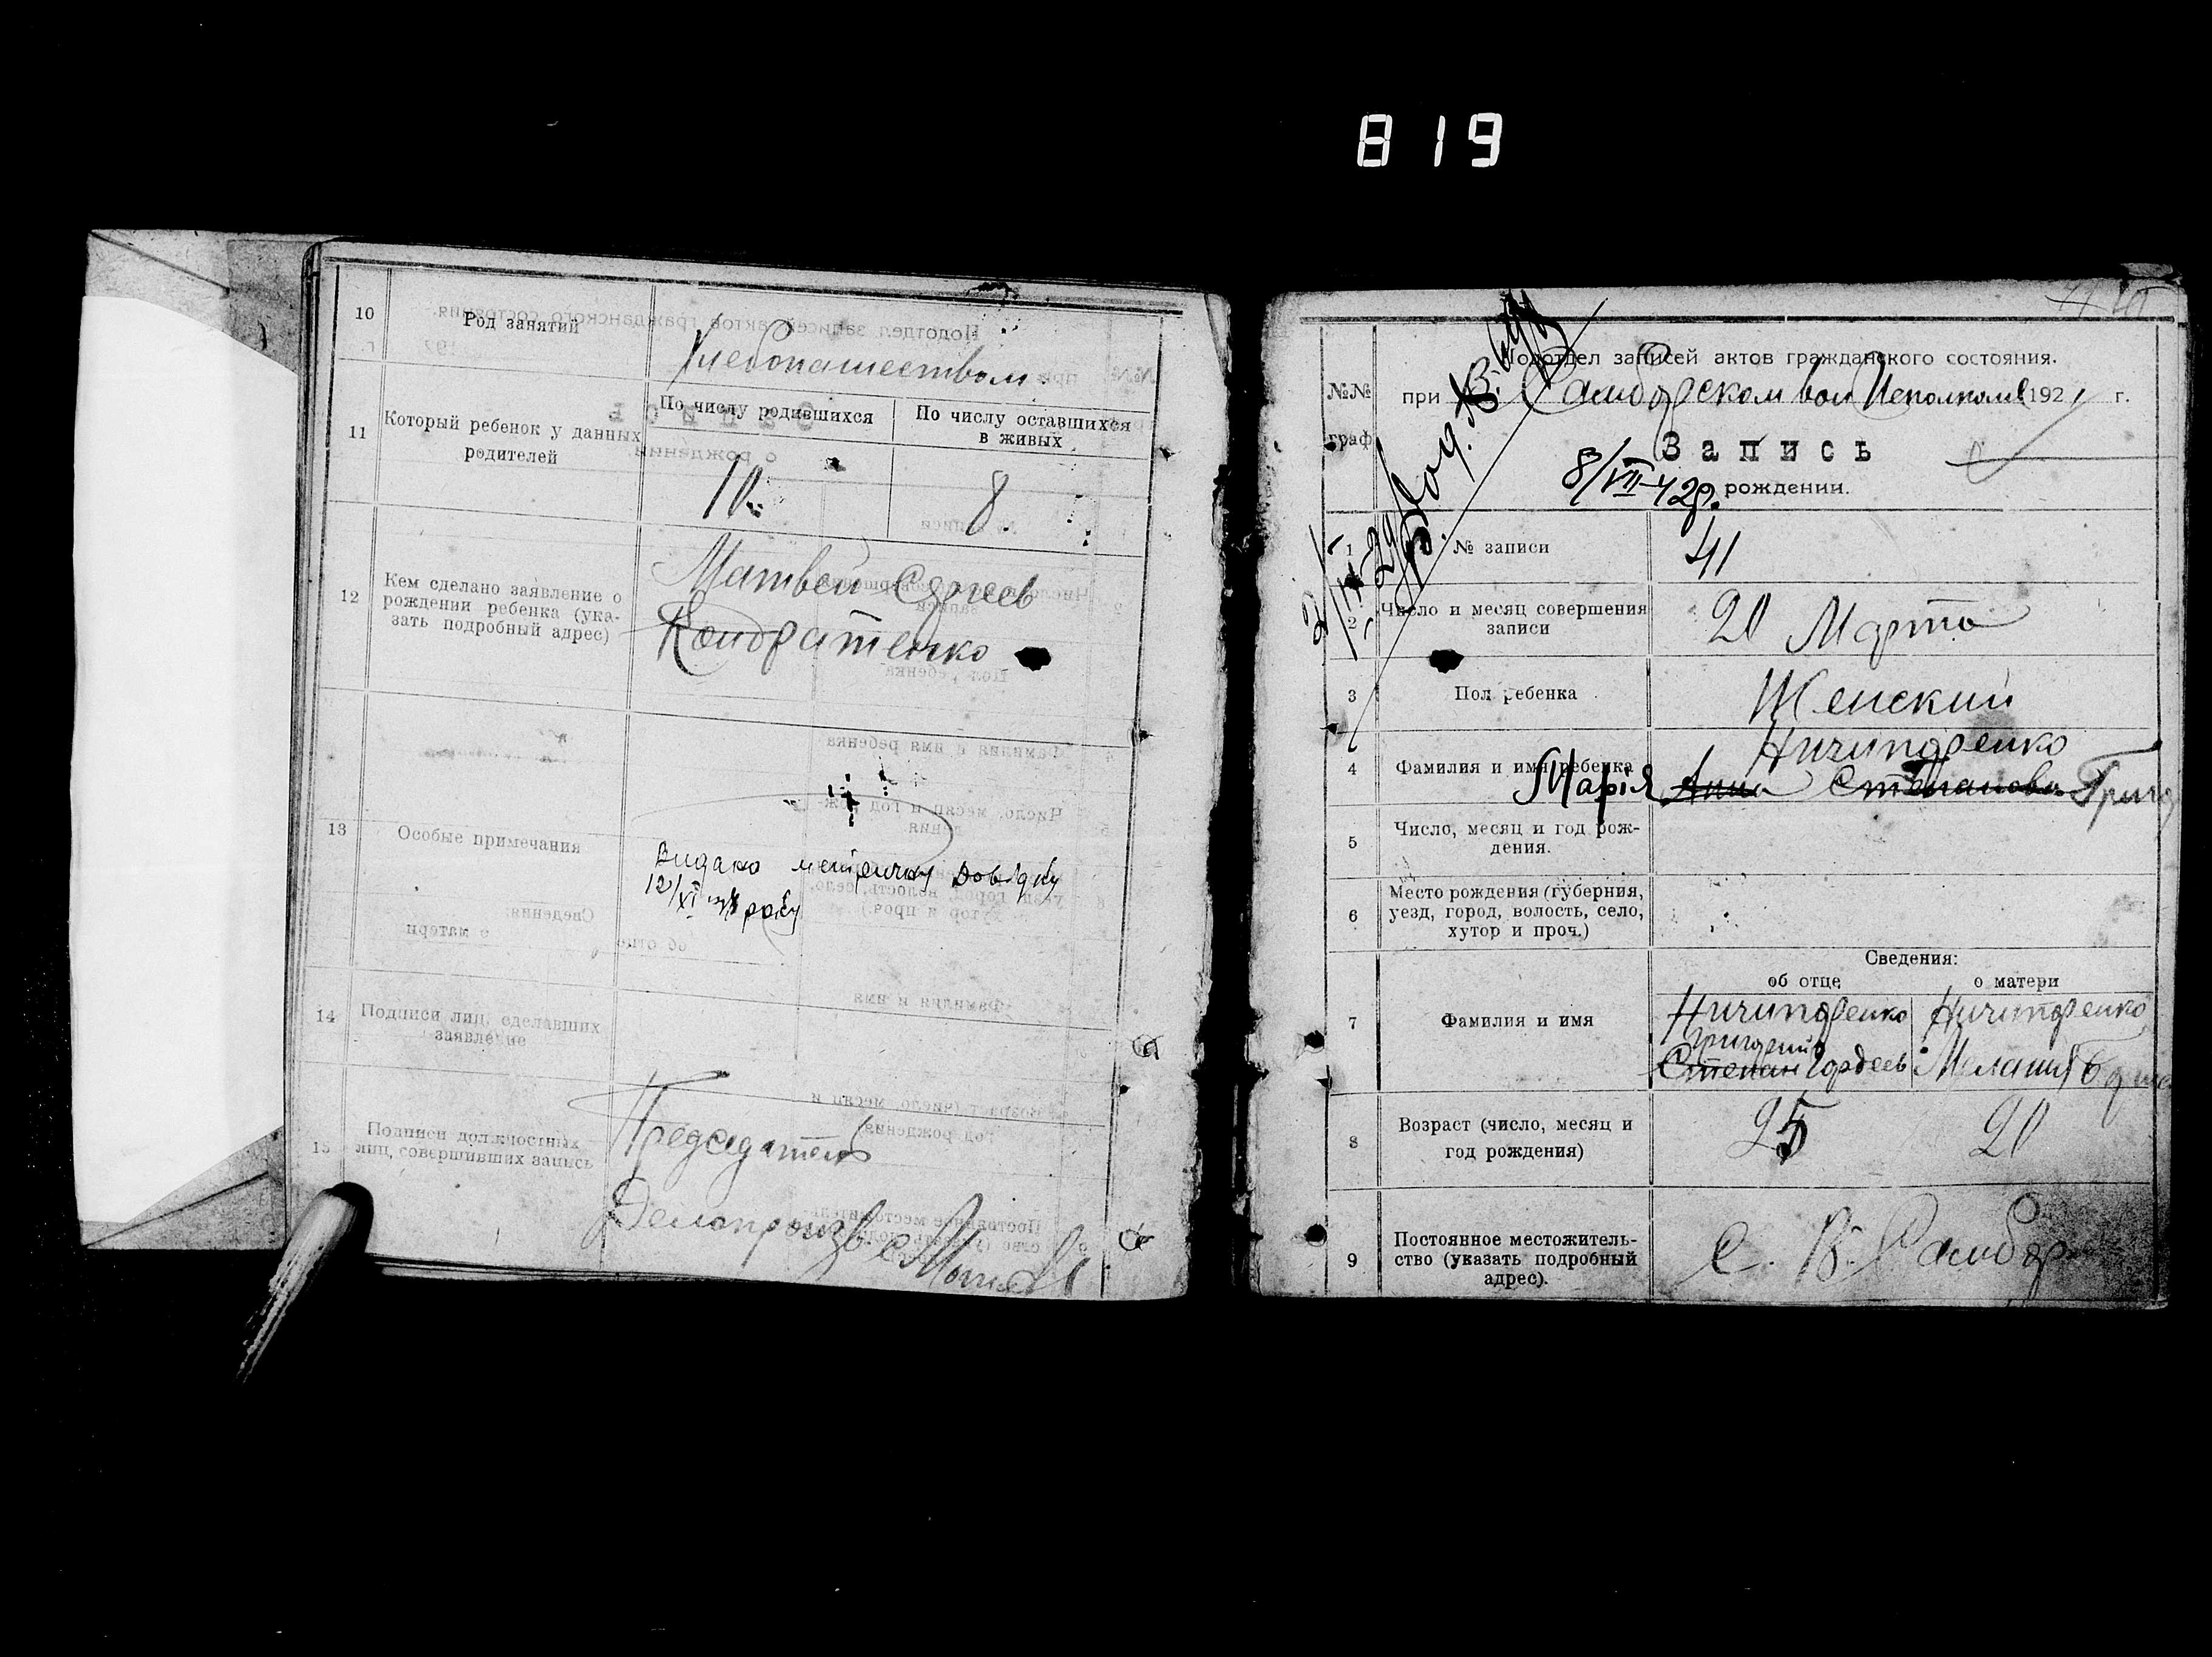 819
10
Род занятий
Хлебопашеством
11
Который ребенок у данных
родителей
По числу родившихся
По числу оставшихся
в живых
10
8
12
Кем сделано заявление о
рождении ребенка (ука-
зать подробный адрес)
Матвей
Кондратенко
13
Особые примечания
Видано метричну довідку
12/XI
року
14
Подписи лиц, сделавших
заявление
15
Подписи должностных
лиц, совершивших запись
Председатель
Делопроизв.
№№
граф
Подотдел записей актов гражданского состояния.
при Самборском вол Исполкоме 1921 г.
Запись
8/VII-42р. рождении.
1
№ записи
41
2
Число и месяц совершения
записи
20 Марта
3
Пол ребенка
Женский
4
Фамилия и имя ребенка
Ничипоренко
Марія Анна Степанова Григо
5
Число, месяц и год рож-
дения.
6
Место рождения (губерния,
уезд, город, волость, село,
хутор и проч.)
Сведения:
об отце
о матери
7
Фамилия и имя
Ничипоренко
Григорий
Степан Гордеев
Ничипоренко
Мелания
8
Возраст (число, месяц и
год рождения)
25
20
9
Постоянное местожитель-
ство (указать подробный
адрес).
С. В. Самбор